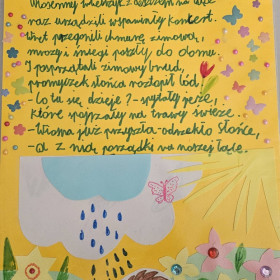 Wiosenny wietrzyk z deszczem na łące
raz urządzili wspaniały koncert.
Wnet przegonili chmurę zimową,
mrozy i śniegi poszły do domu.
I posprzątali zimowy brud,
promyczek słońca roztopił lód.
- Co tu się dzieje? - spytały jeże,
które spojrzały na trawy świeże.
- Wiosna już przyszła - odrzekło słońce,
- A z nią porządki na naszej łące.